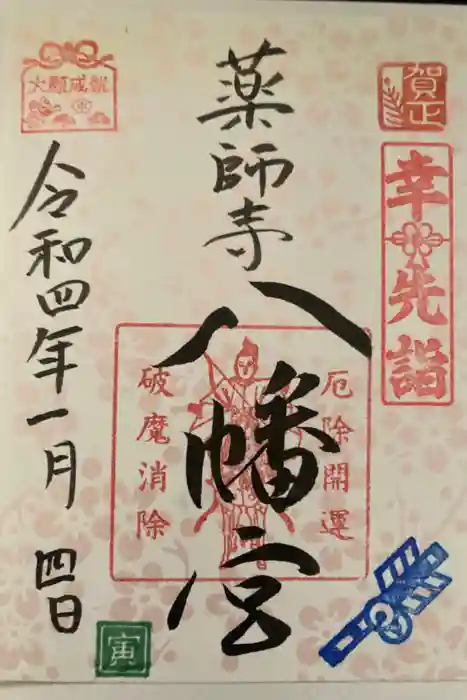 賀正
幸先詣
薬師寺
八幡宮
厄除開運
破魔消除
大願成就
令和四年一月四日
寅